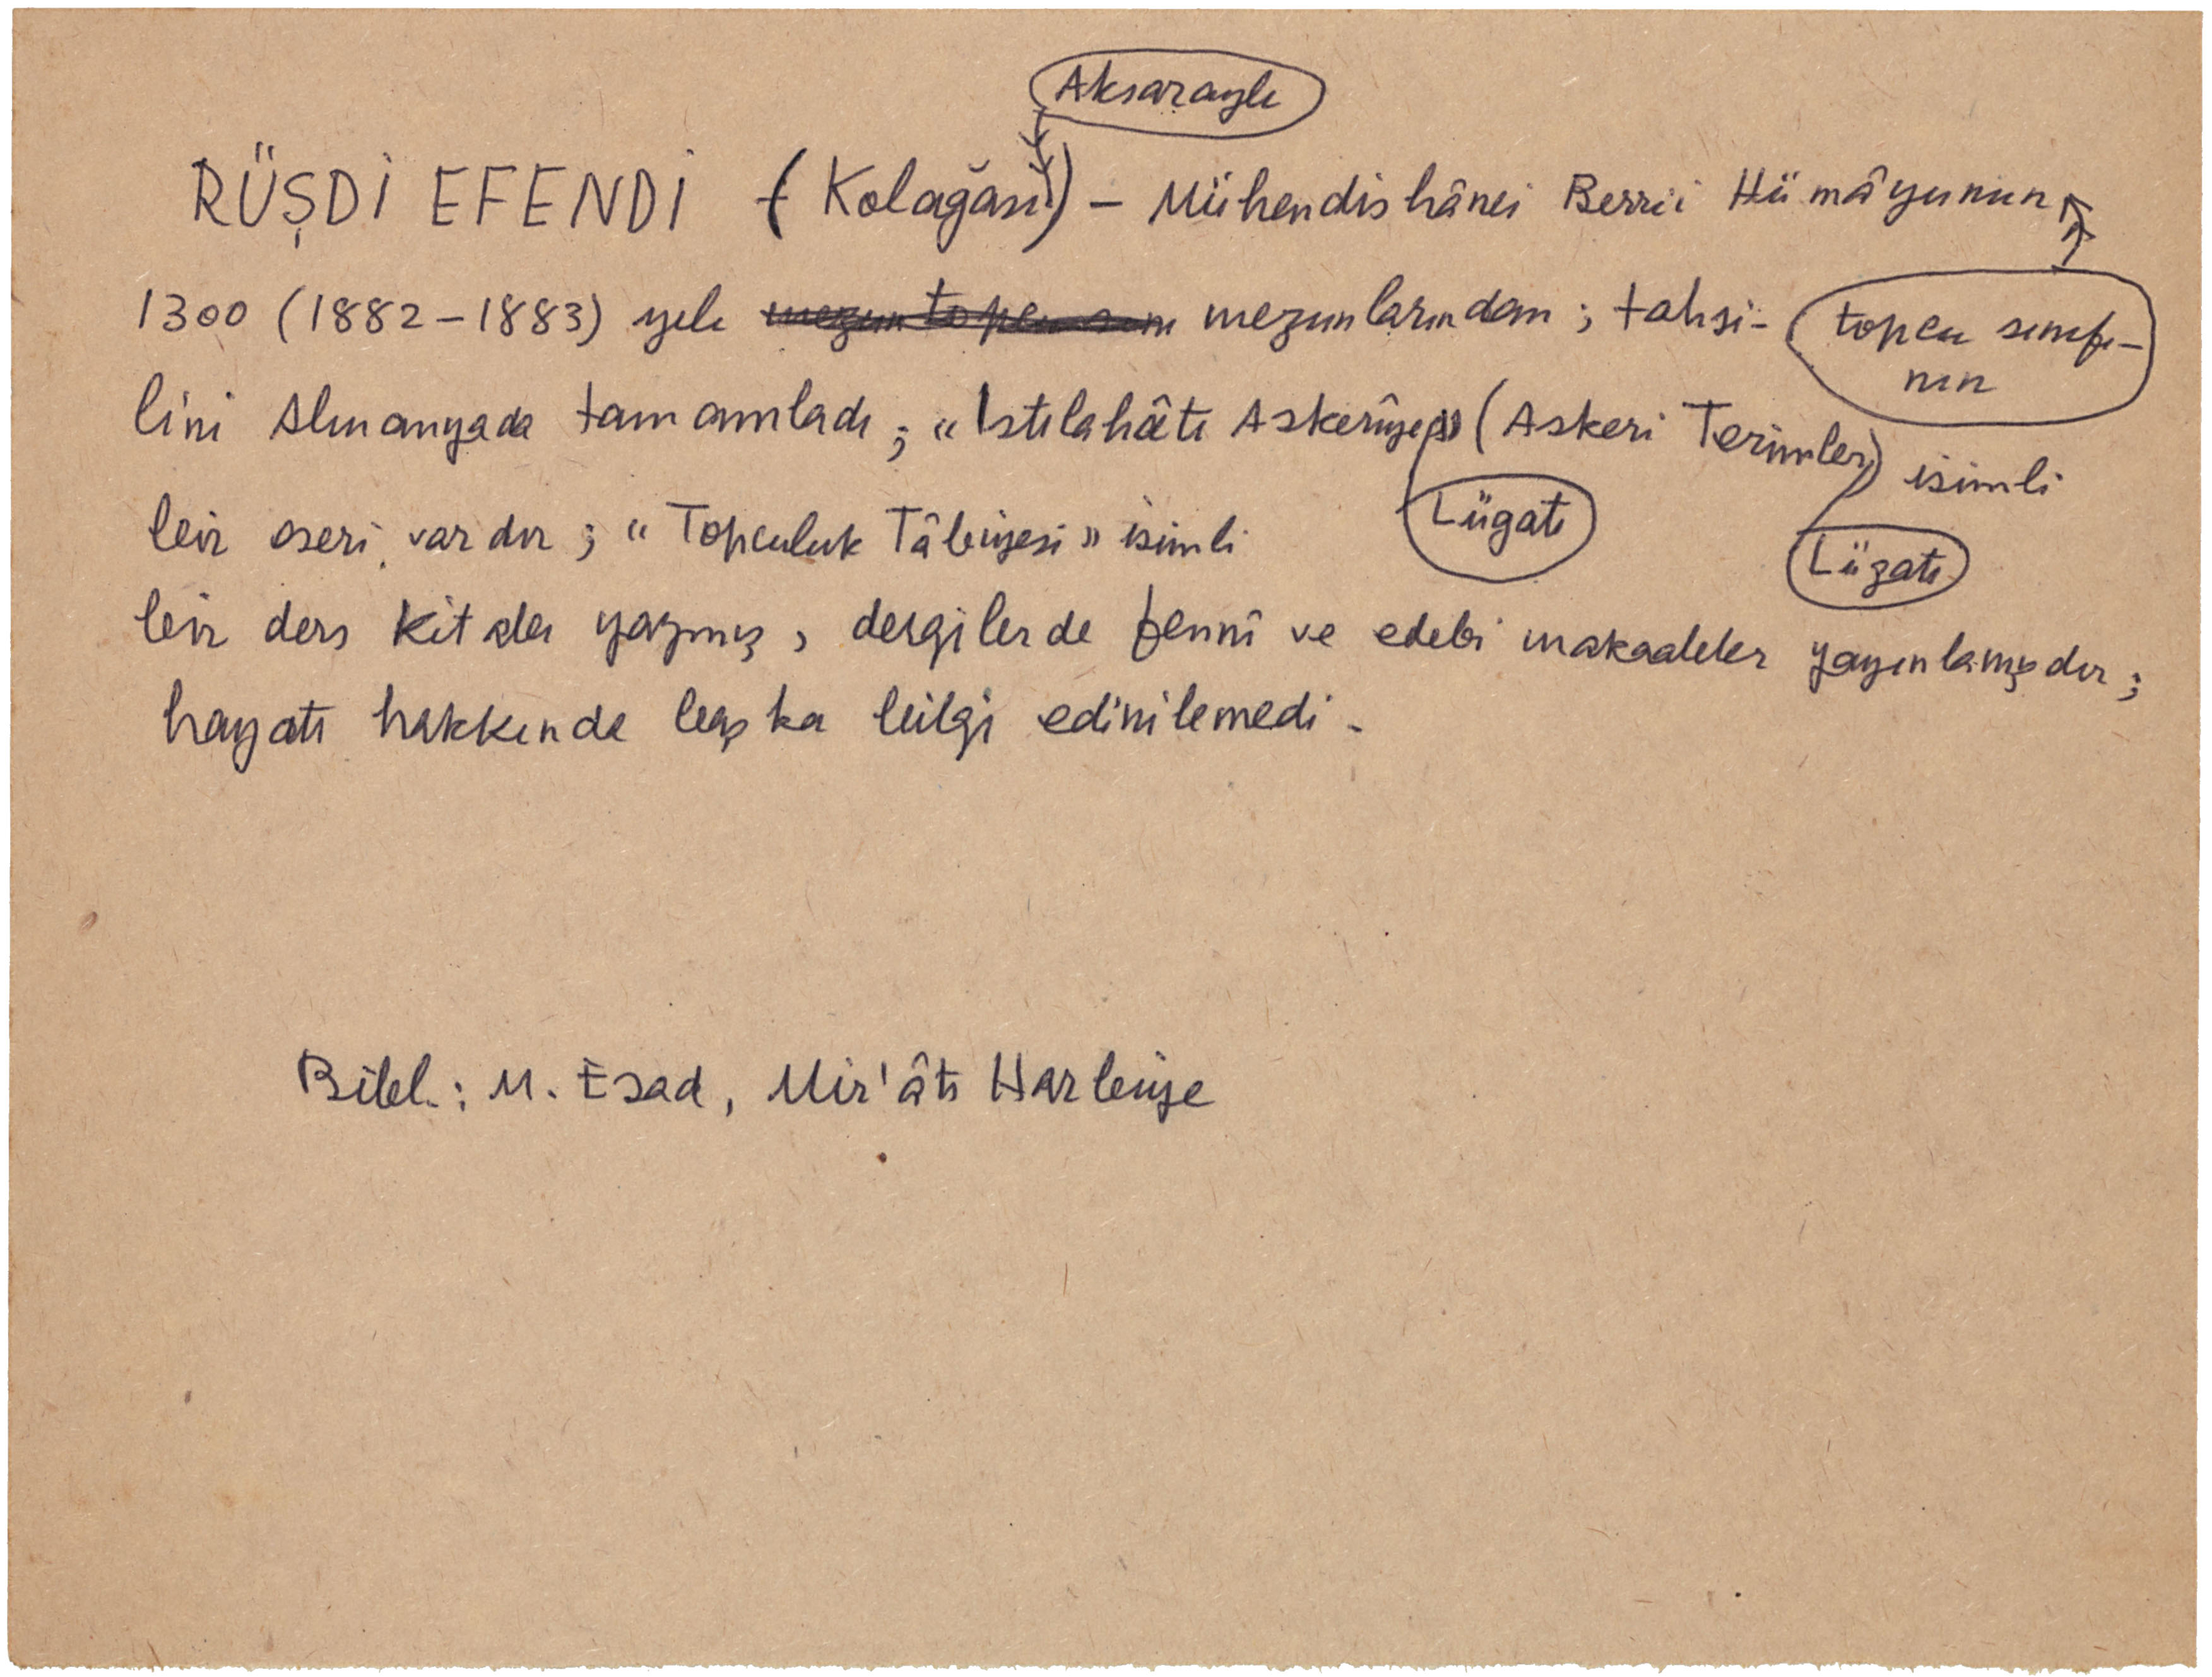 Aksaraylı
RÜŞDİ EFENDİ (Kolağası) – Mühendishânei Berrii Hümâyunun
1300 (1882–1883) yılı mezun topcu sını mezunlarından ; tahsi-
topcu sınıfı-
nın
lini Almanyada tamamladı ; “Istılahâtı Askerîye” (Askeri Terimler) isimli
Lügatı
Lügatı
bir eseri vardır ; “Topculuk Tâbiyesi” isimli
bir ders kitabı yazmış , dergilerde fennî ve edebi makaaleler yayınlamışdır ;
hayatı hakkında başka bilgi edinilemedi .
Bibl. : M. Esad , Mir'âtı Harbiye